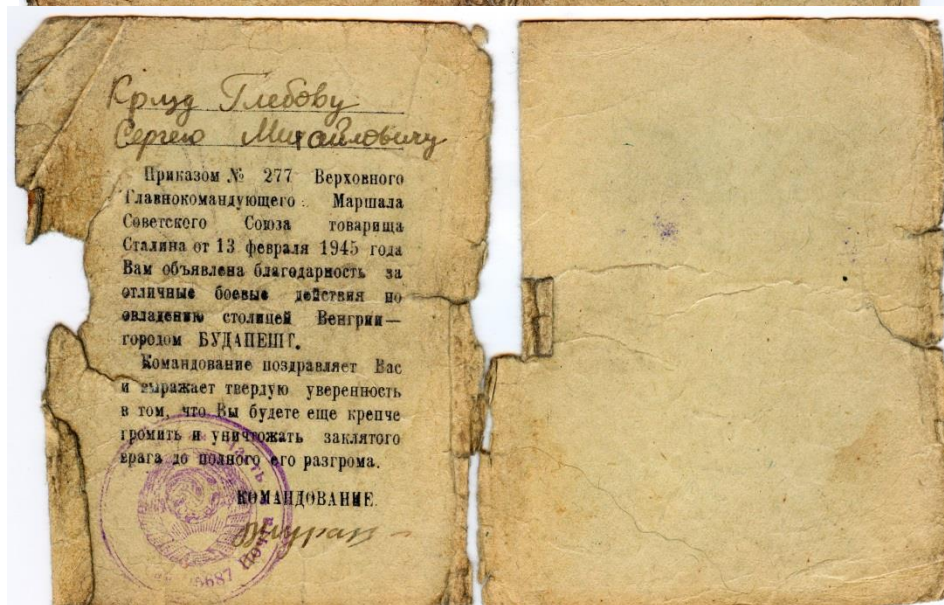 Глебову
Сергею Михайловичу
Приказом № 277 Верховного
Главнокомандующего Маршала
Советского Союза товарища
Сталина от 13 февраля 1945 года
Вам объявлена благодарность за
отличные боевые действия по
овладению столицей Венгрии —
городом БУДАПЕШТ.
Командование поздравляет Вас
и выражает твердую уверенность
в том, что Вы будете еще крепче
громить и уничтожать заклятого
врага до полного его разгрома.
КОМАНДОВАНИЕ.